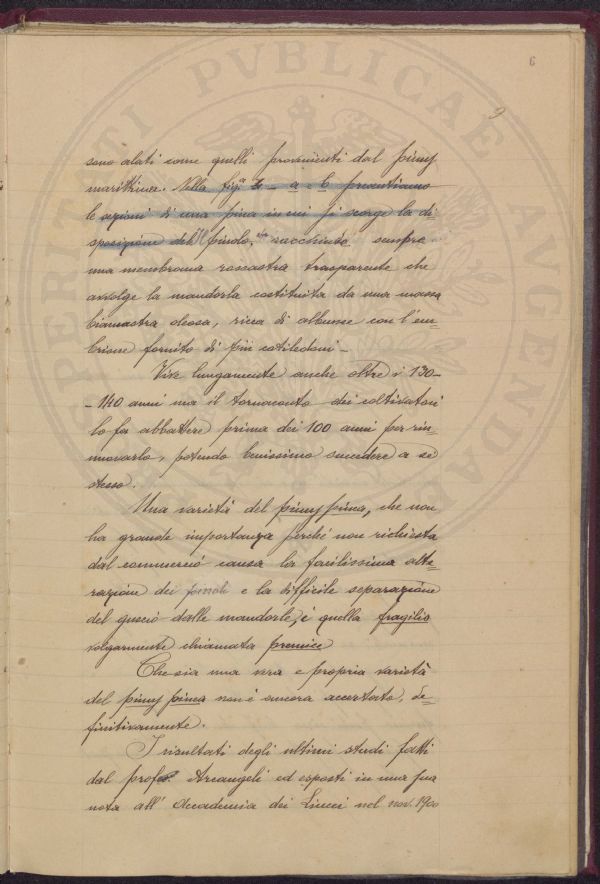 6
9
sono alati come quelli provenienti dal pinus
marittima. Nella fig.a 4 - a e b presentiamo
le sezioni di una pina in cui si scorge la di
sposizione del pinolo, racchiude sempre
una membrana rossastra trasparente che
avvolge la mandorla costituita da una massa
biancastra oleosa, ricca di albume con l'em=
brione fornito di più cotiledoni -
Vive lungamente anche oltre i 130-
-140 anni ma il tornaconto dei coltivatori
lo fa abbattere prima dei 100 anni per rin=
novarlo, potendo benissimo succedere a sè
stesso.
Una varietà del pinus pinea, che non
ha grande importanza perché non richiesta
dal commercio causa la facilissima alte=
razione dei pinoli e la difficile separazione
del guscio dalle mandorle, è quella fragilis
volgarmente chiamata premice
Che sia una vera e propria varietà
del pinus pinea non è ancora accertato, de=
finitivamente.
I risultati degli ultimi studi fatti
dal prof. Arcangeli ed esposti in una sua
nota all'Accademia dei Lincei nel nov. 1900
SPERITATI PVBLICAE